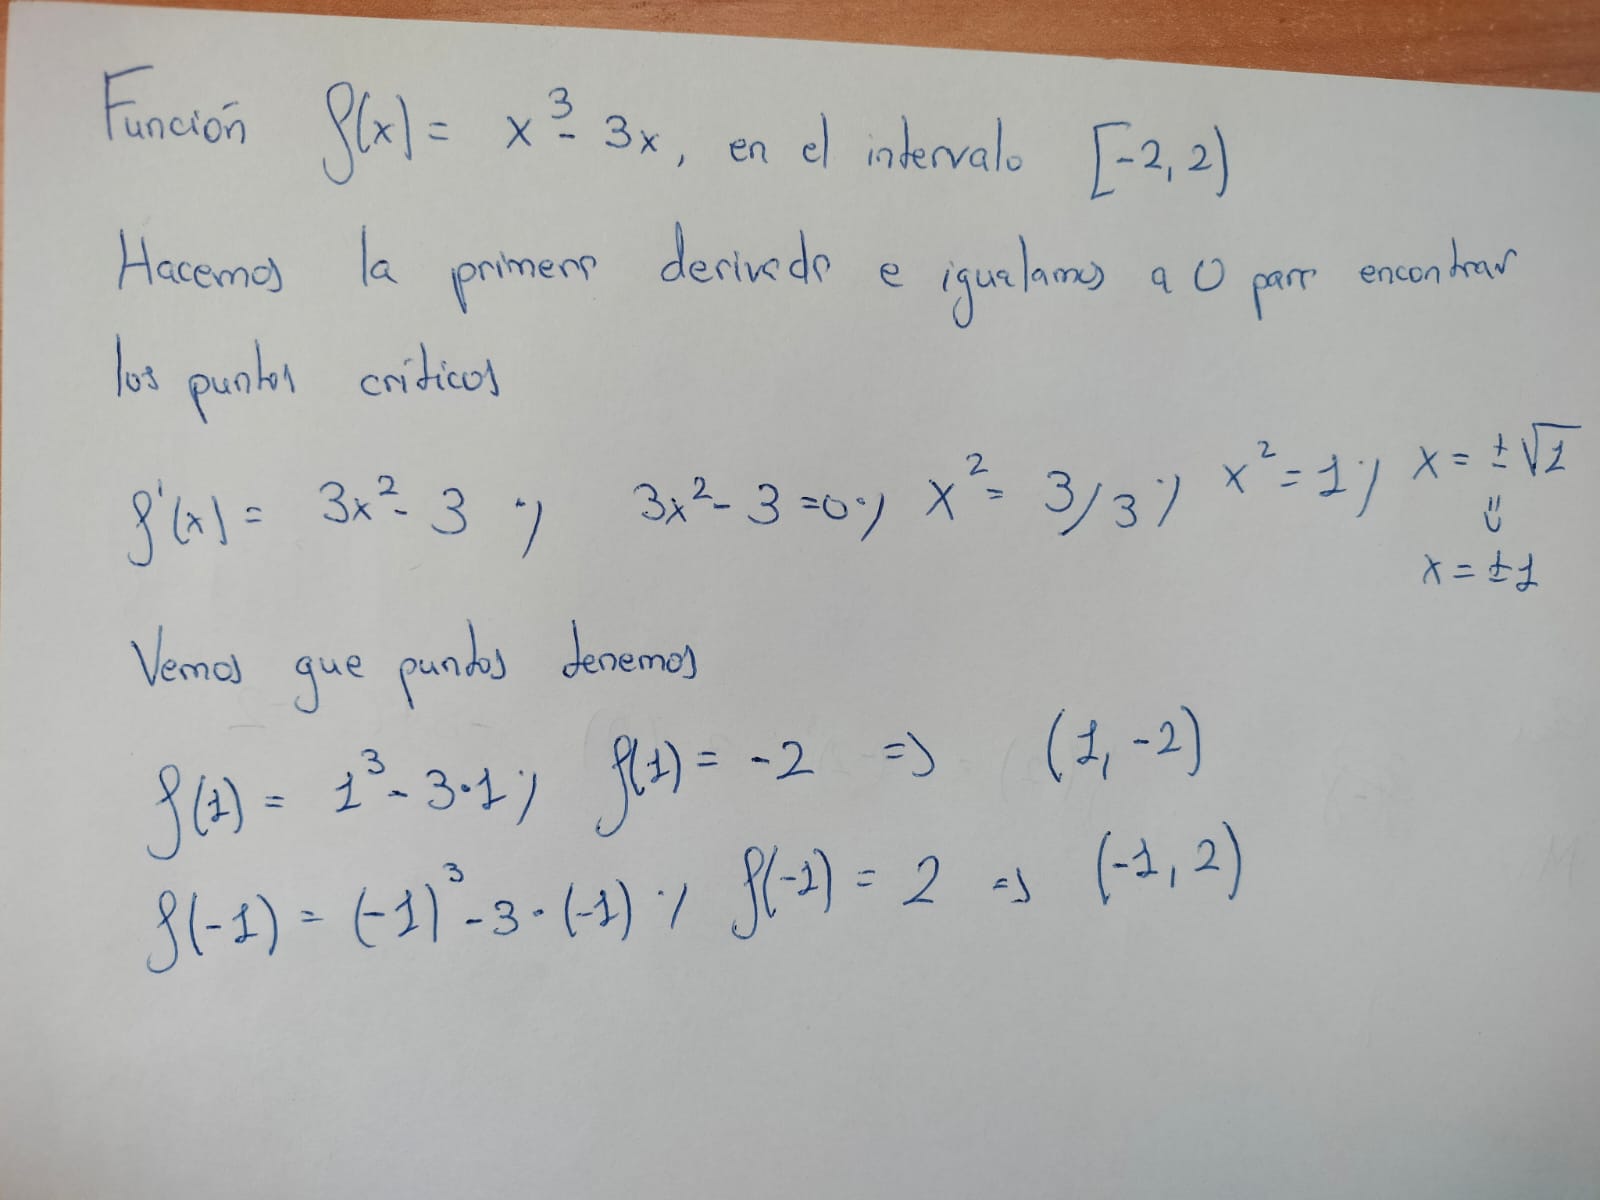 Función f(x) = x³ - 3x, en el intervalo [-2, 2)
Hacemos la primera derivada e igualamos a 0 para encontrar
los puntos críticos
f'(x) = 3x² - 3 ; 3x² - 3 = 0 ; x² = 3/3 ; x² = 1 ; x = ±√1
⇓
x = ±1
Vemos que puntos tenemos
f(1) = 1³ - 3·1 ; f(1) = -2 => (1, -2)
f(-1) = (-1)³ - 3·(-1) ; f(-1) = 2 => (-1, 2)